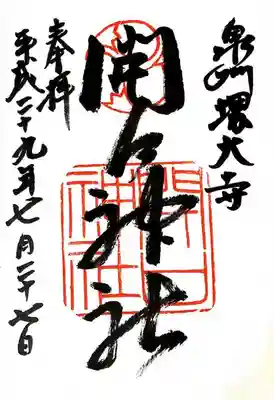 泉州堺大寺
開口神社
奉拝
平成二十九年七月二十七日
開口
神社